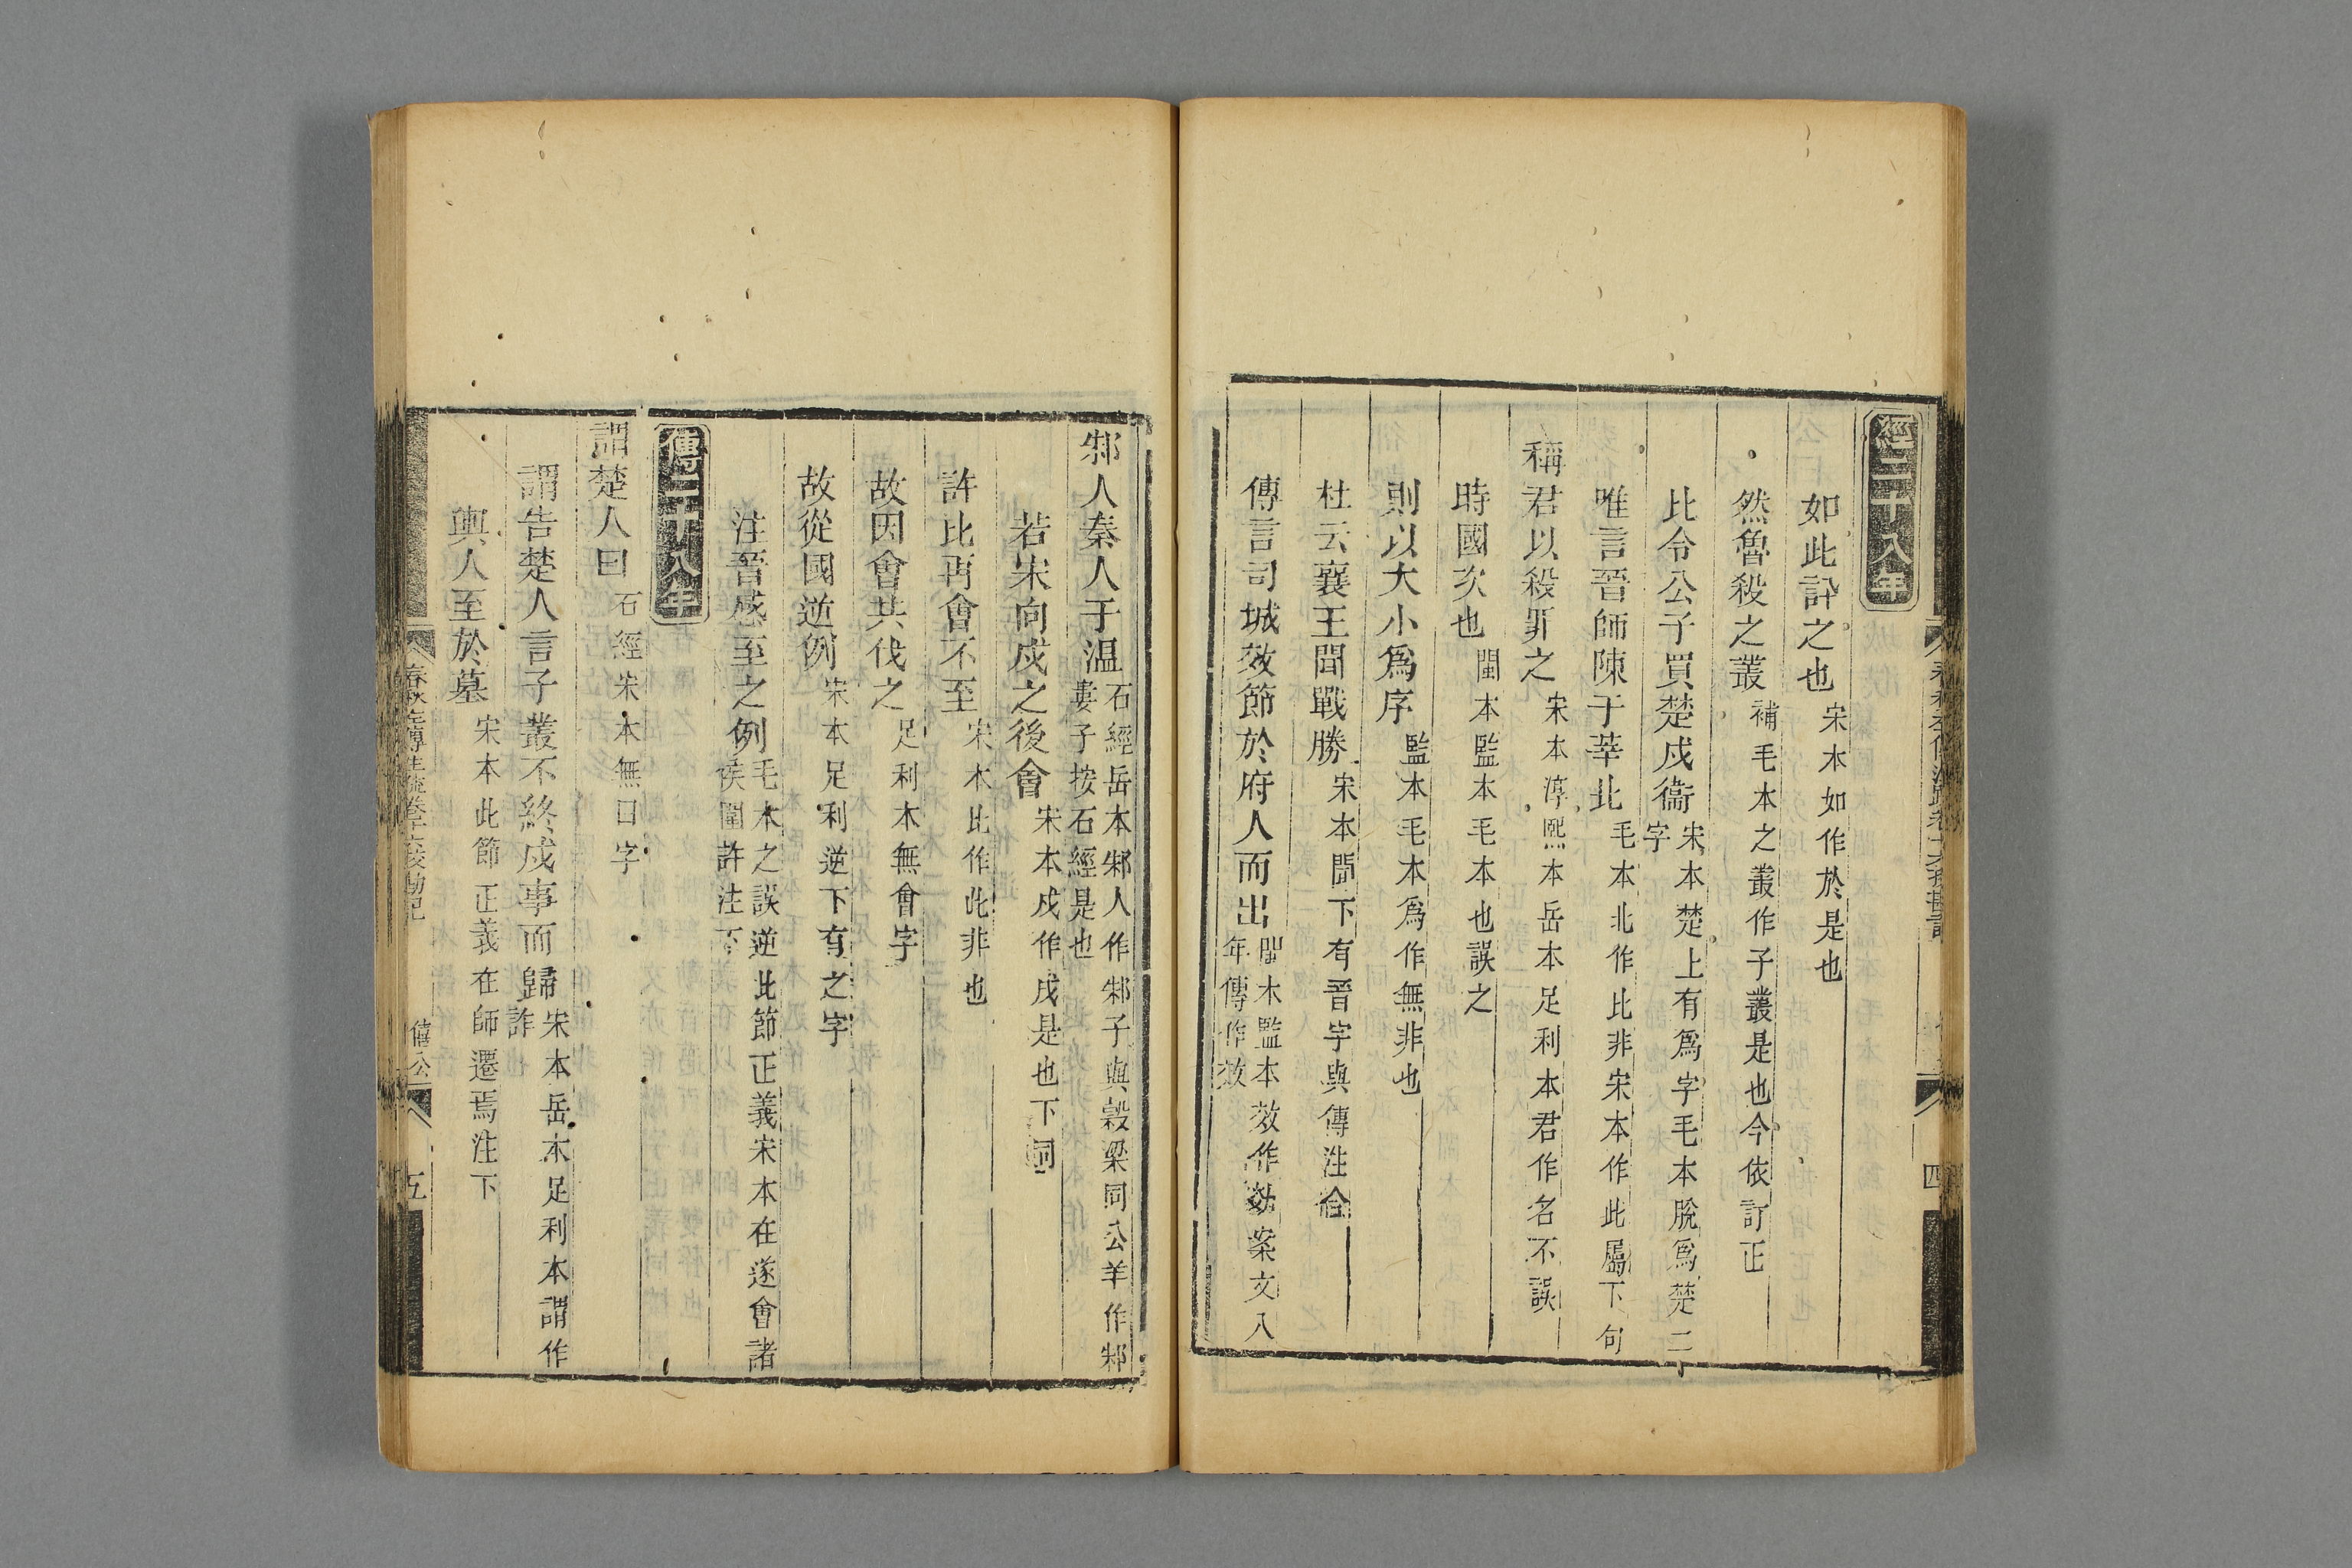 經二十八年
如此訃之也宋本如作於是也
然魯殺之叢補毛本之叢作子叢是也今依訂正
比令公子買楚戍衞宋本楚上有爲字毛本脫爲楚二字
唯言晉師陳于莘北毛本北作比非宋本作此屬下句
稱君以殺罪之宋本淳熙本岳本足利本君作名不誤
時國次也閩本監本毛本也誤之
則以大小爲序監本毛本爲作無非也
杜云襄王聞戰勝宋本聞下有晉字與傳注合
傳言司城效節於府人而出閩本監本效作効案文八年傳作效
四
邾人秦人于温石經岳本邾人作邾子與穀梁同公羊作邾婁子按石經是也
若宋向戍之後會宋本戍作戌是也下同
許比再會不至宋本比作此非也
故因會共伐之足利本無會字
故從國逆例宋本足利逆下有之字
注晉感至之例毛本之誤逆此節正義宋本在遂會諸侯圍許注下
傳二十八年
謂楚人曰石經宋本無曰字
謂告楚人言子叢不終戍事而歸宋本岳本足利本謂作詐
輿人至於墓宋本此節正義在師遷焉注下
春秋左傳注疏卷十六校勘記
僖公
五